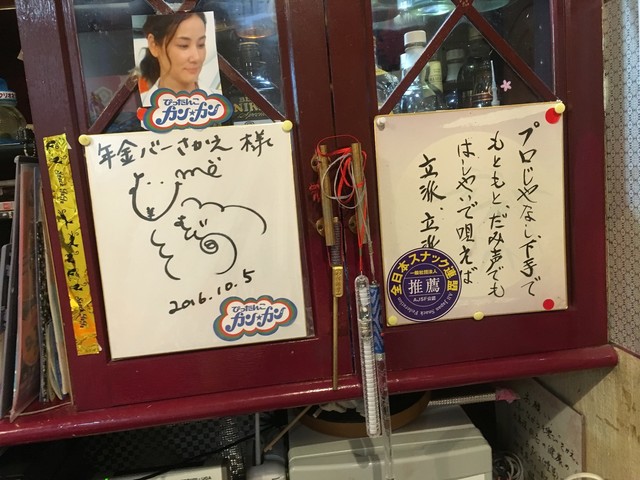 ぴったんこ
カン☆カン
年金バーさかえ 様
2016.10.5
ぴったんこ
カン☆カン
プロじゃなし、下手で
もともと、だみ声でも
はしゃいで唄えば
立派、立派
全日本スナック連盟
一般社団法人
推薦
AJSF公認
All Japan Snack Federation